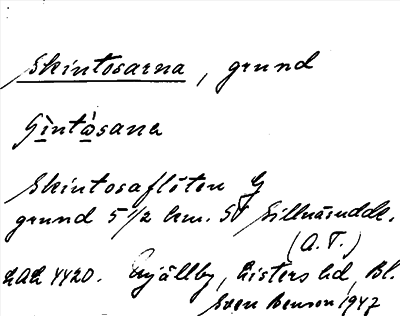 Skintosarna, grund
Skintosaflöten G
grund 5 1/2 km. SV Sillnäsudde.
(A.T.)
LAL 4420. Mjällby, Listers hd, Bl.
Sven Benson 1947